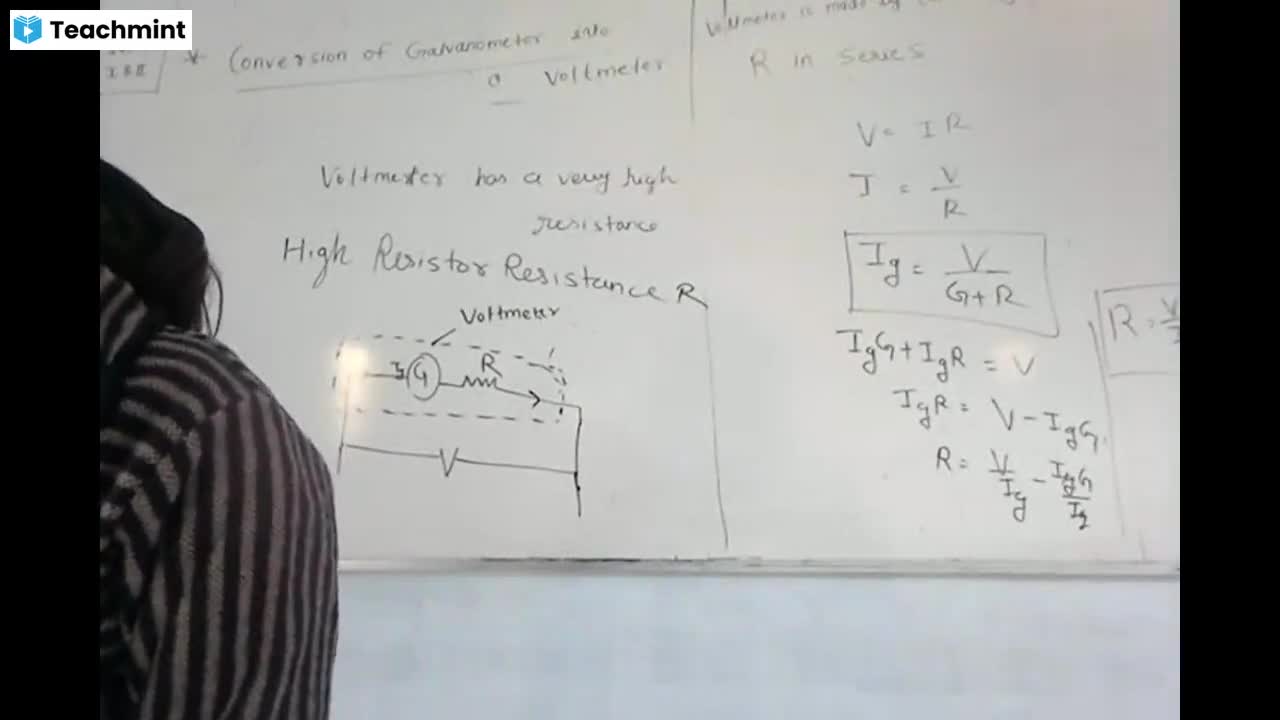 Teachmint
* Conversion of Galvanometer into
a Voltmeter
Voltmeter has a very high
resistance
High Resistor Resistance R
Voltmeter
Ig G R
V
Voltmeter is made by
R in series
V = IR
I = V/R
Ig = V/(G+R)
IgG + IgR = V
IgR = V - IgG
R = V/Ig - IgG/Ig
R = V